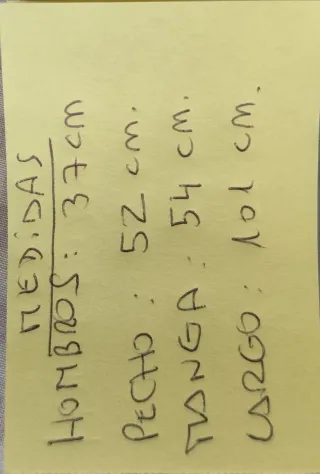 MEDIDAS
HOMBROS: 37cm
PECHO: 52 cm.
MANGA: 54 cm.
LARGO: 101 cm.